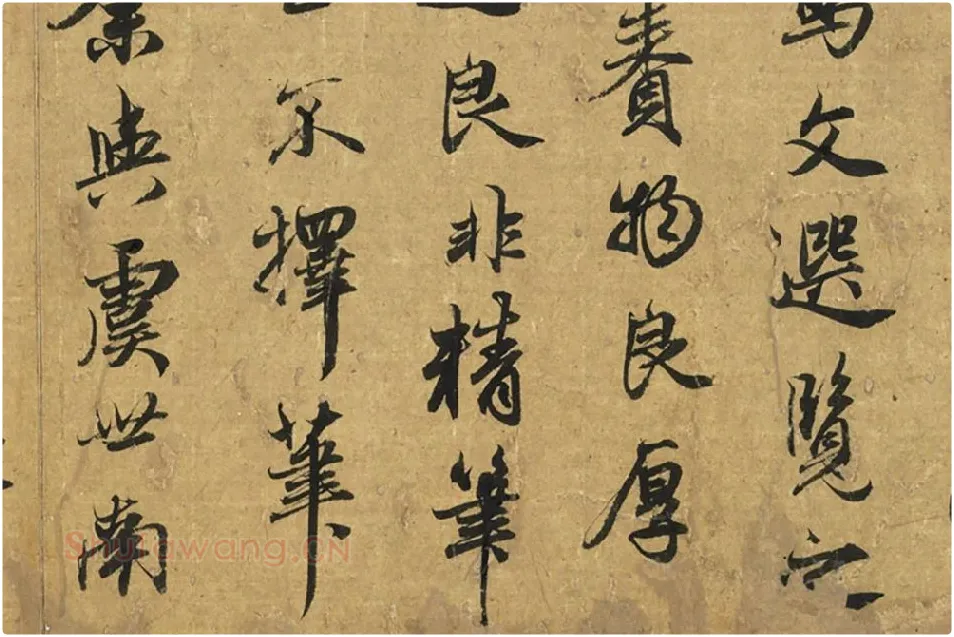 寫文選覽之
賚物良厚
良非精筆
不擇筆
余與虞世南
Shufawang.CN